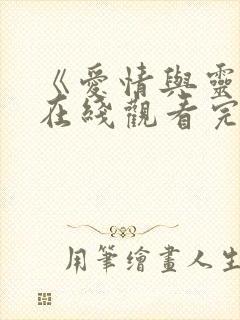 《愛情與靈
在綫觀看完
用筆繪畫人生